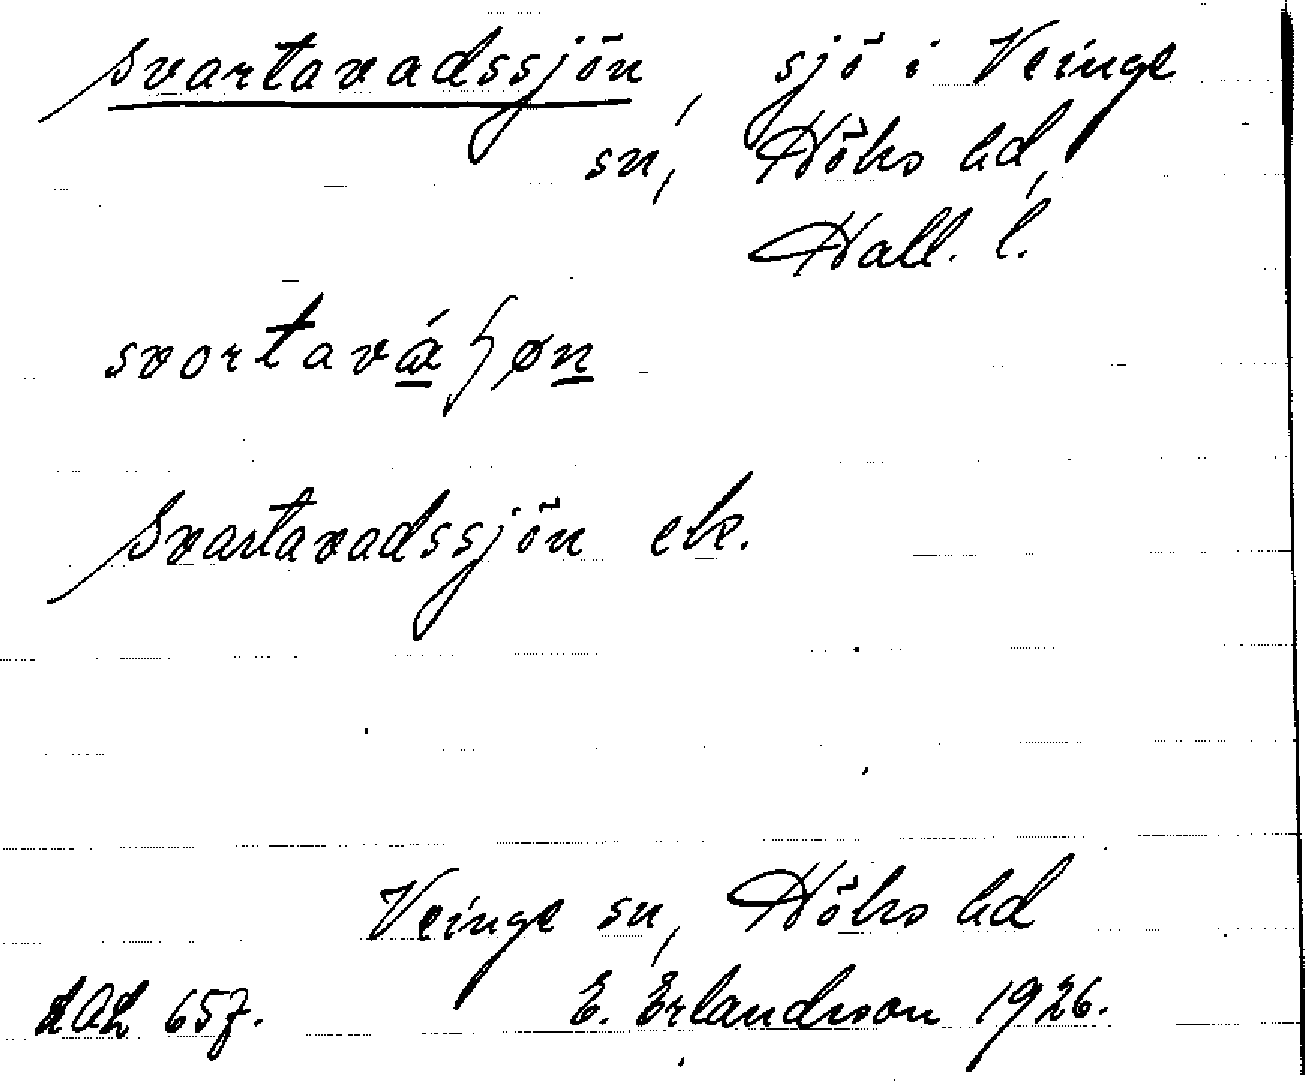 Svartavadssjön, sjö i Veinge
sn, Höks hd,
Hall. l.
svortavá̱ʃøn̲
Svartavadssjön ek.
Veinge sn, Höks hd
E. Erlandsson 1926.